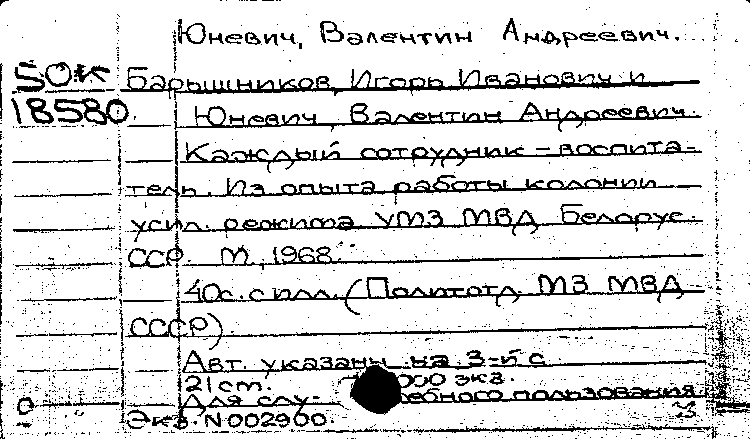 Юневич, Валентин Андреевич.
50к Барышников, Игорь Иванович и
18580. Юневич, Валентин Андреевич.
Каждый сотрудник – воспита-
тель. Из опыта работы колонии
усил. режима УМЗ МВД Белорус.
ССР. М., 1968.
40с. с илл. (Политотд. МЗ МВД
СССР).
Авт. указаны на 3-й с.
21 cm. 000 экз.
Для слу- ебного пользования
Экз. N 002900.